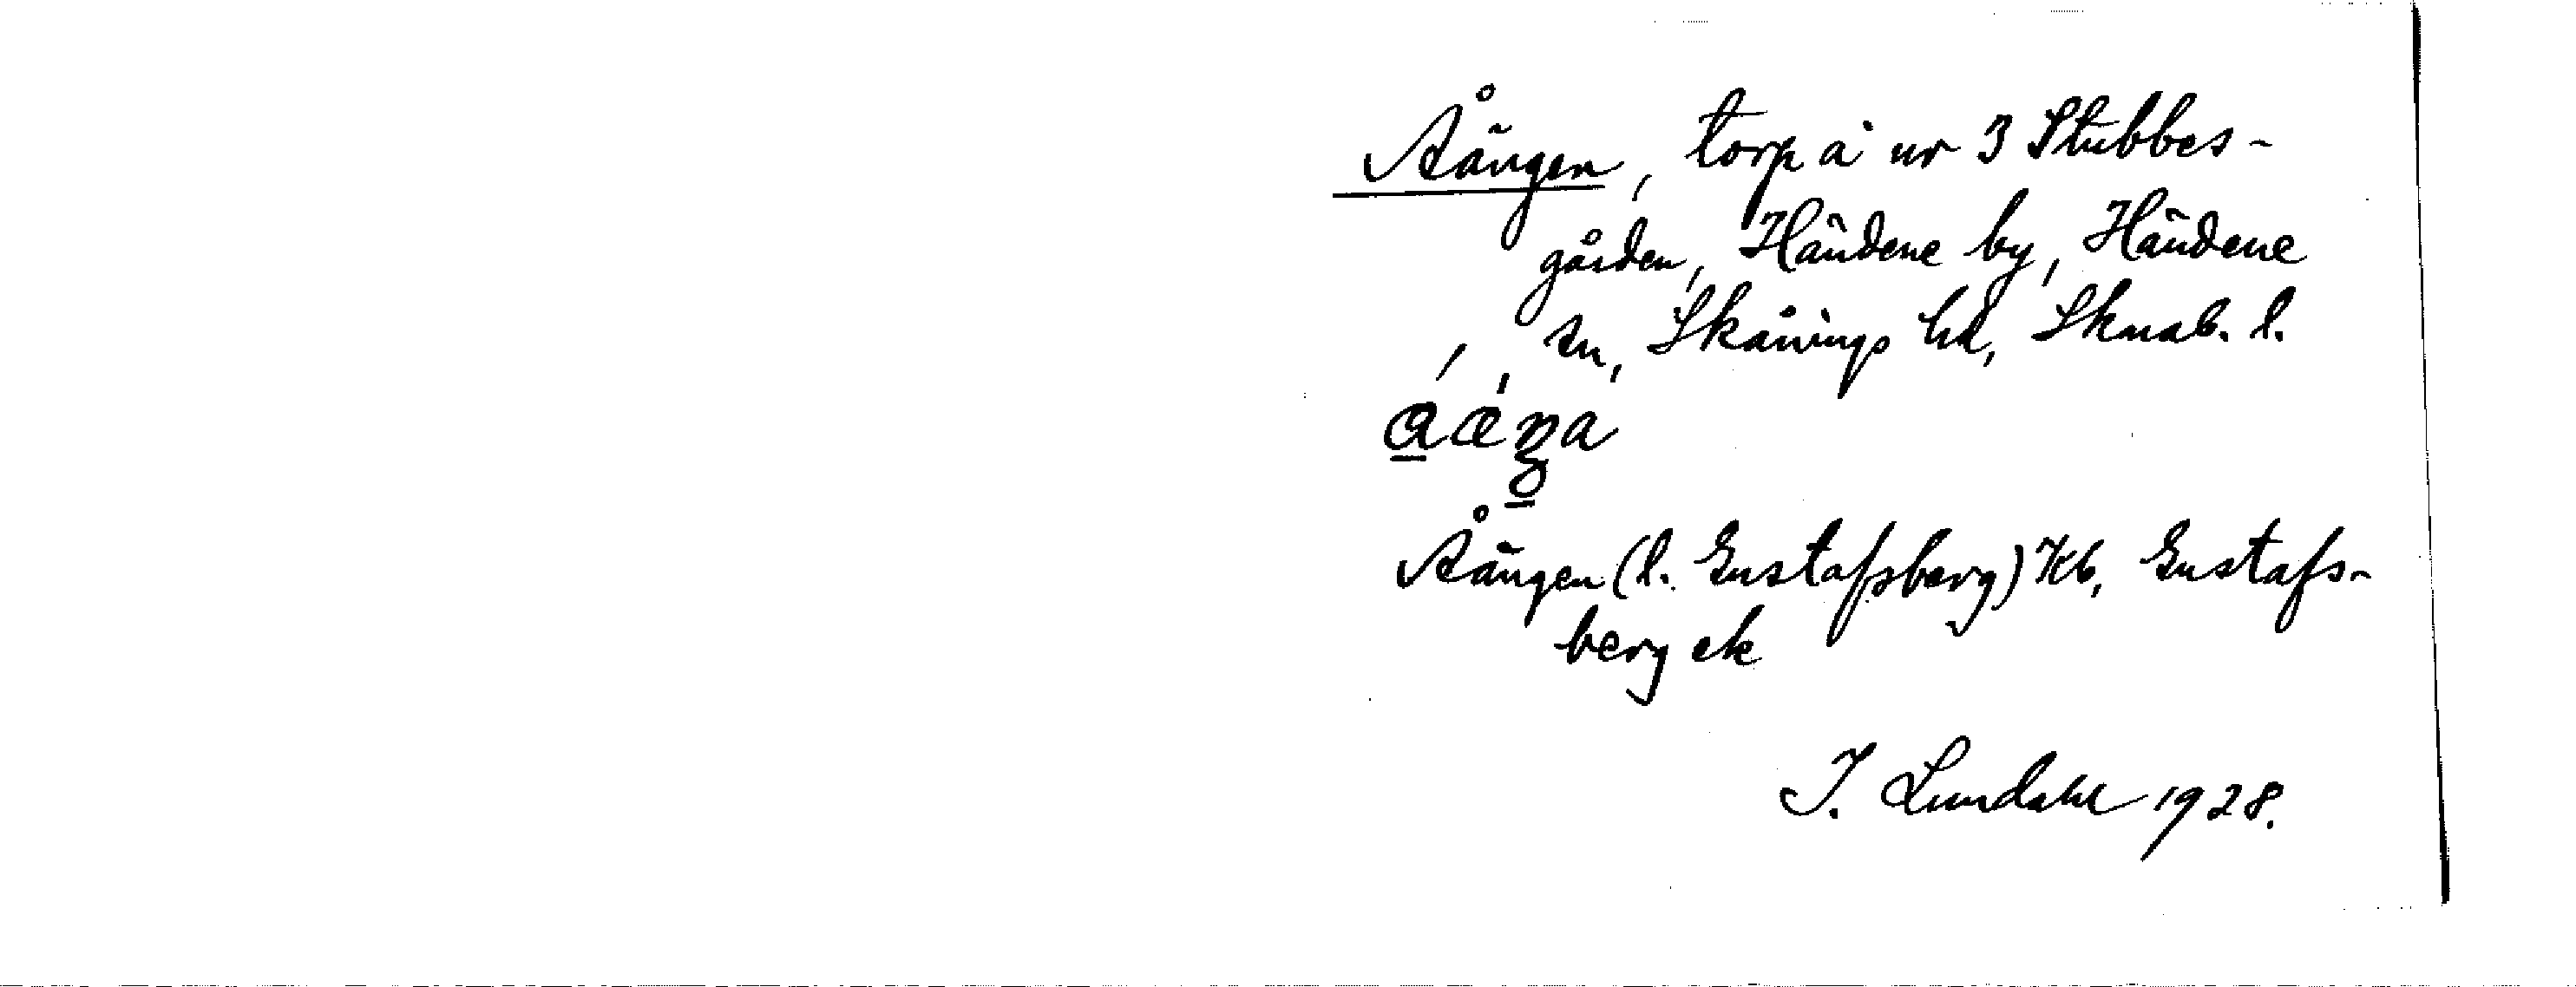 Åängen, torp å nr 3 Stubbes-
gården, Händene by, Händene
sn, Skånings hd, Skarab. l.
Åängen (l. Gustafsberg) Kb, Gustafs-
berg ek
I. Lundahl 1928.